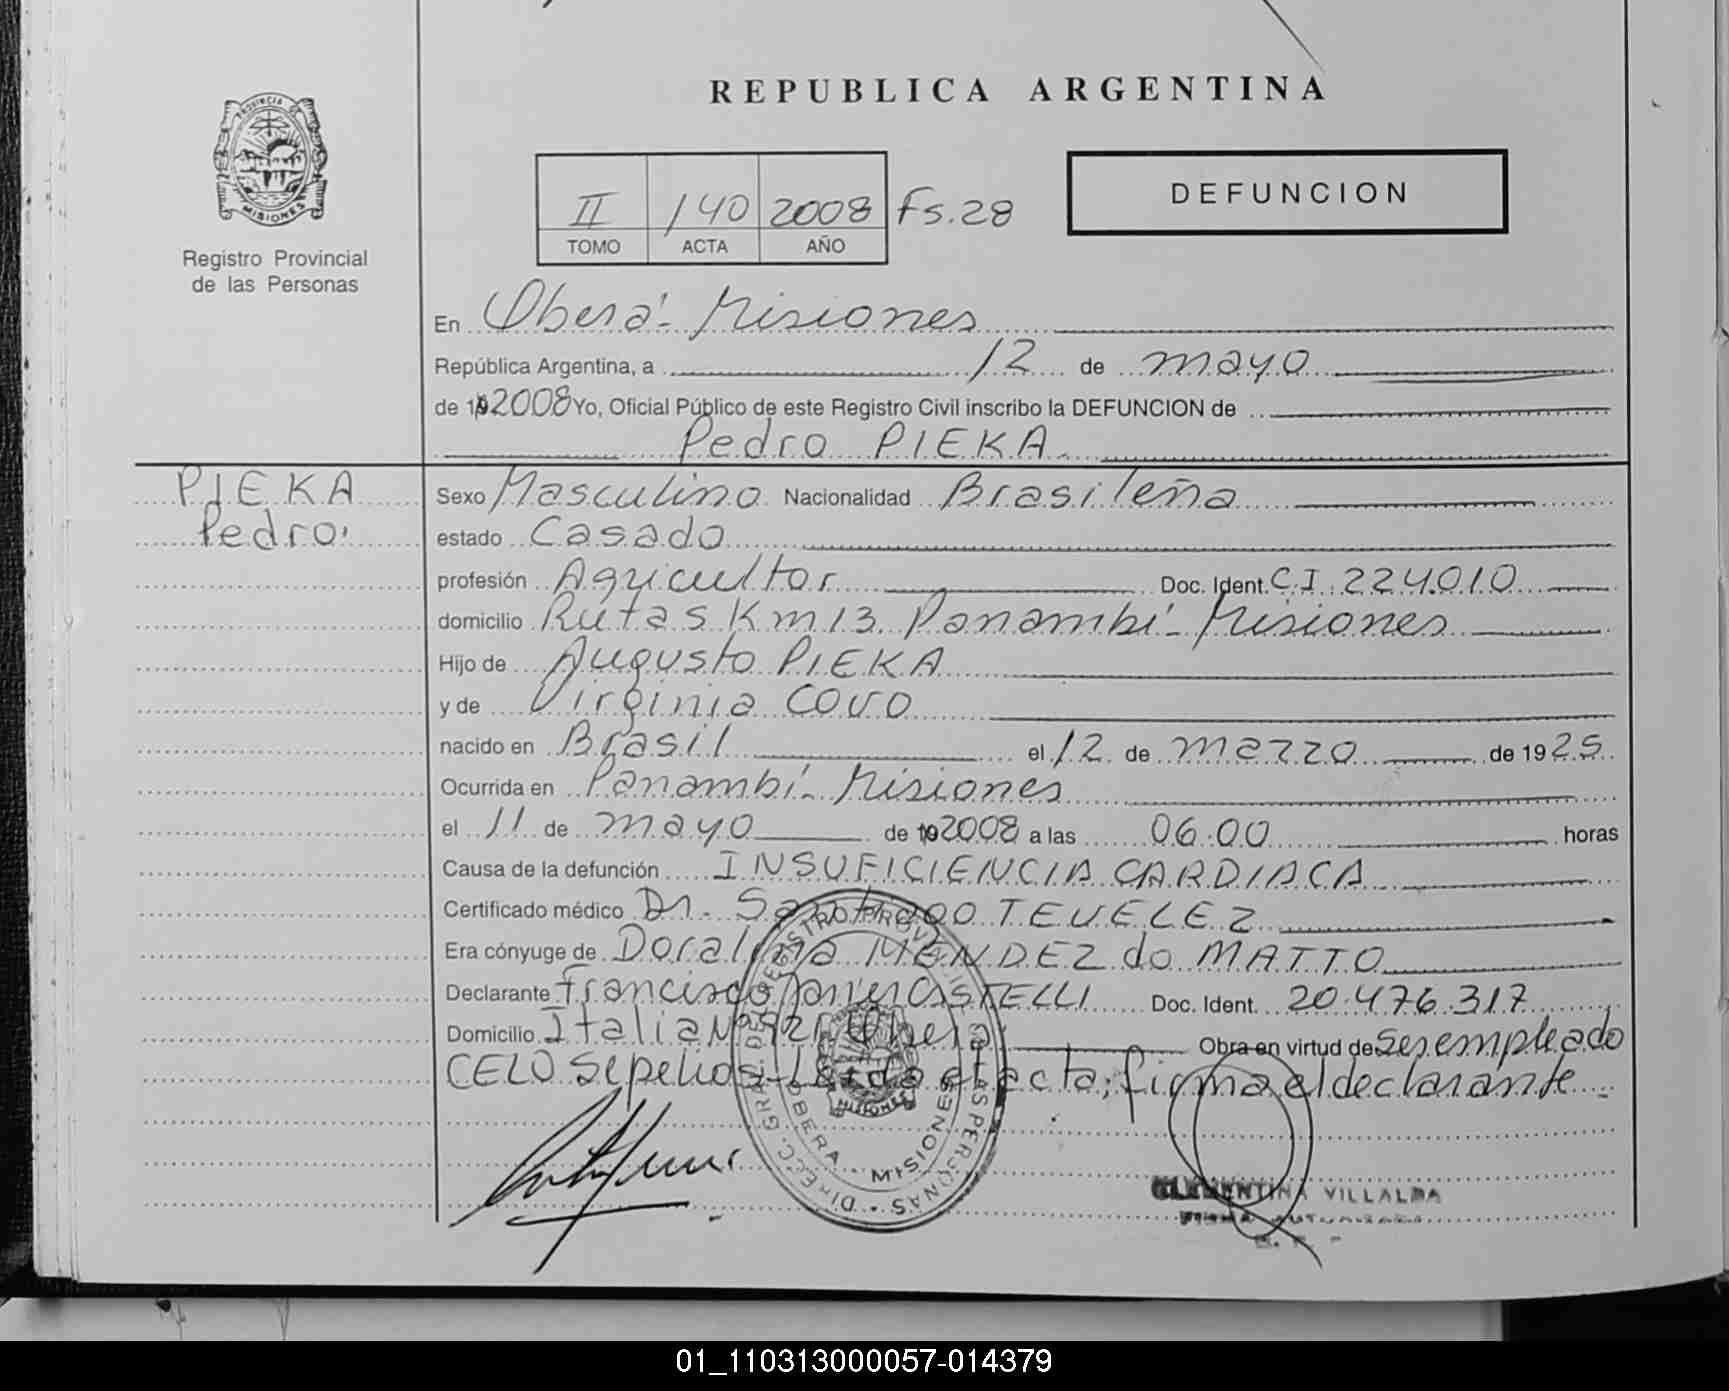 REPUBLICA ARGENTINA
PROVINCIA DE
MISIONES
Registro Provincial
de las Personas
II 140 2008 Fs. 28
TOMO ACTA AÑO
DEFUNCION
En Oberá - Misiones
República Argentina, a 12 de mayo
de 19 2008 Yo, Oficial Público de este Registro Civil inscribo la DEFUNCION de
Pedro PIEKA
PIEKA
Pedro
Sexo Masculino Nacionalidad Brasileña
estado Casado
profesión Agricultor Doc. Ident. C.I. 224.010
domicilio Ruta 5 Km 13 Panambí - Misiones
Hijo de Augusto PIEKA
y de Virginia COVO
nacido en Brasil el 12 de marzo de 1925
Ocurrida en Panambí - Misiones
el 11 de mayo de 19 2008 a las 06.00 horas
Causa de la defunción INSUFICIENCIA CARDIACA
Certificado médico Dr. Santiago TEVELEZ
Era cónyuge de Doralina MENDEZ do MATTO
Declarante Francisco Javier CASTELLI Doc. Ident. 20.476.317
Domicilio Italia Nº Oberá Obra en virtud de ser empleado
CELO Sepelios - Leída el acta; firma el declarante
DIRECC. GRAL. DE REGISTRO PROVINCIAL DE LAS PERSONAS
OBERA - MISIONES
MISIONES
CLEMENTINA VILLALBA
FIRMA AUTORIZADA
01_110313000057-014379